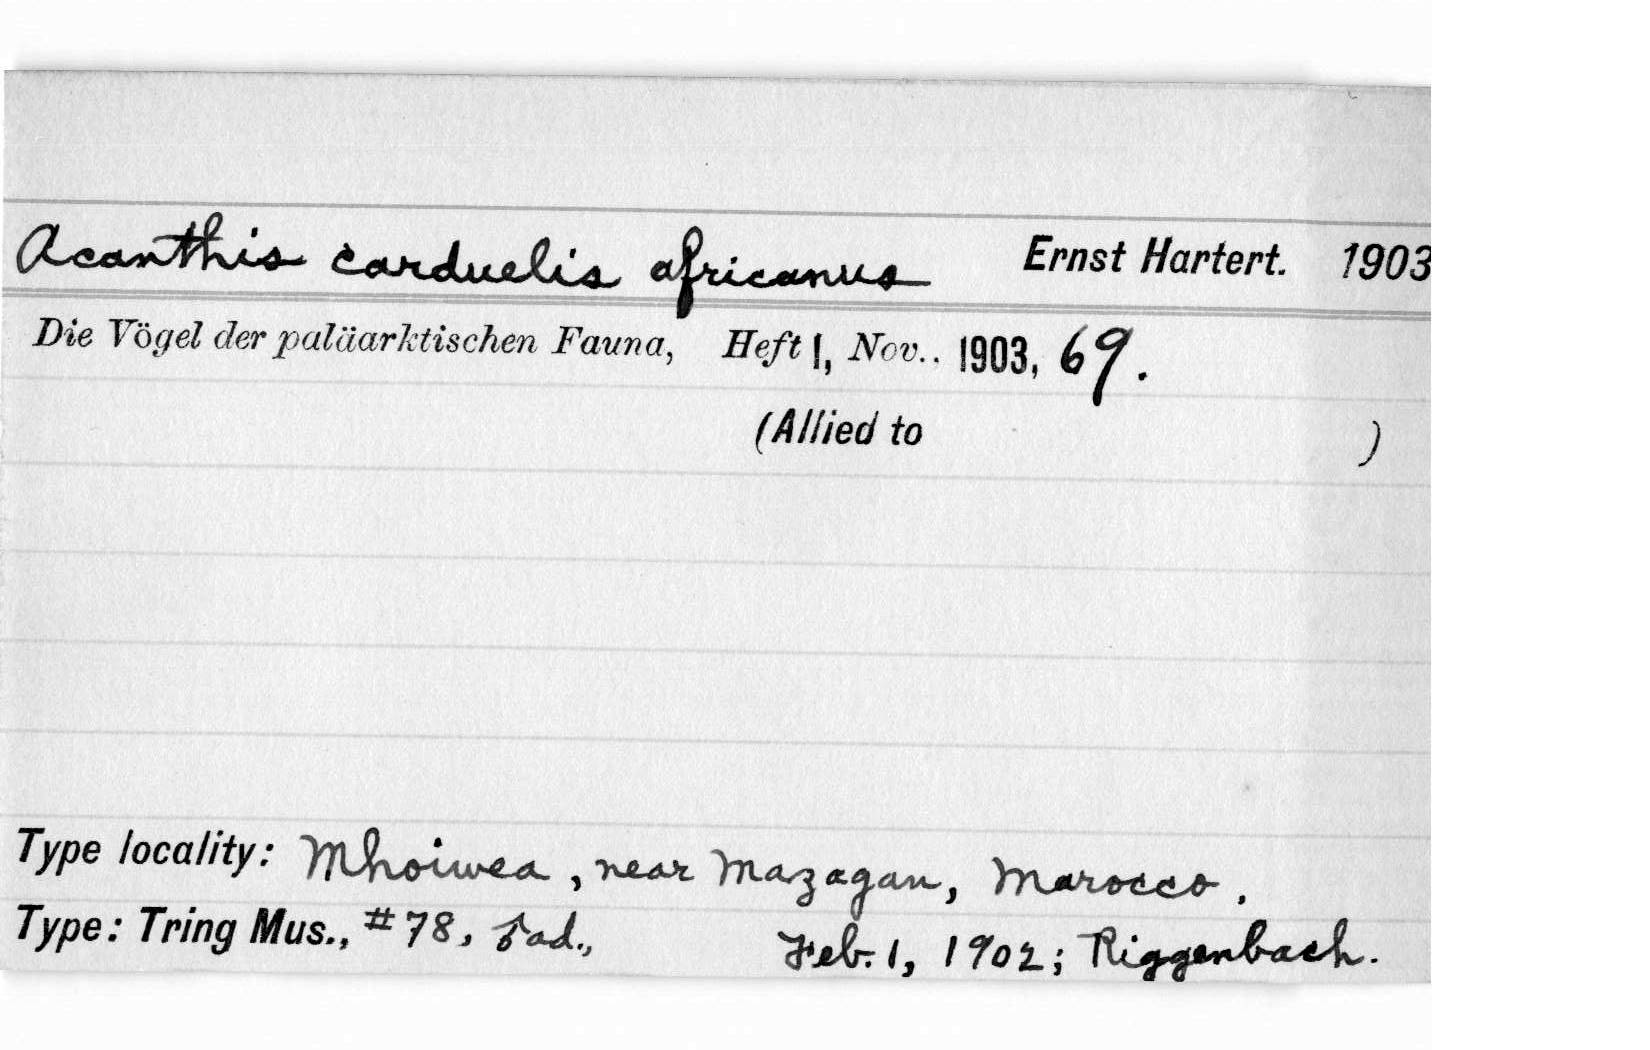 Acanthis carduelis africanus Ernst Hartert. 1903
Die Vögel der paläarktischen Fauna, Heft 1, Nov.. 1903, 69.
(Allied to )
Type locality: Mhoiwea, near Mazagan, Marocco.
Type: Tring Mus., #78, ♂ ad., Feb. 1, 1902; Riggenbach.